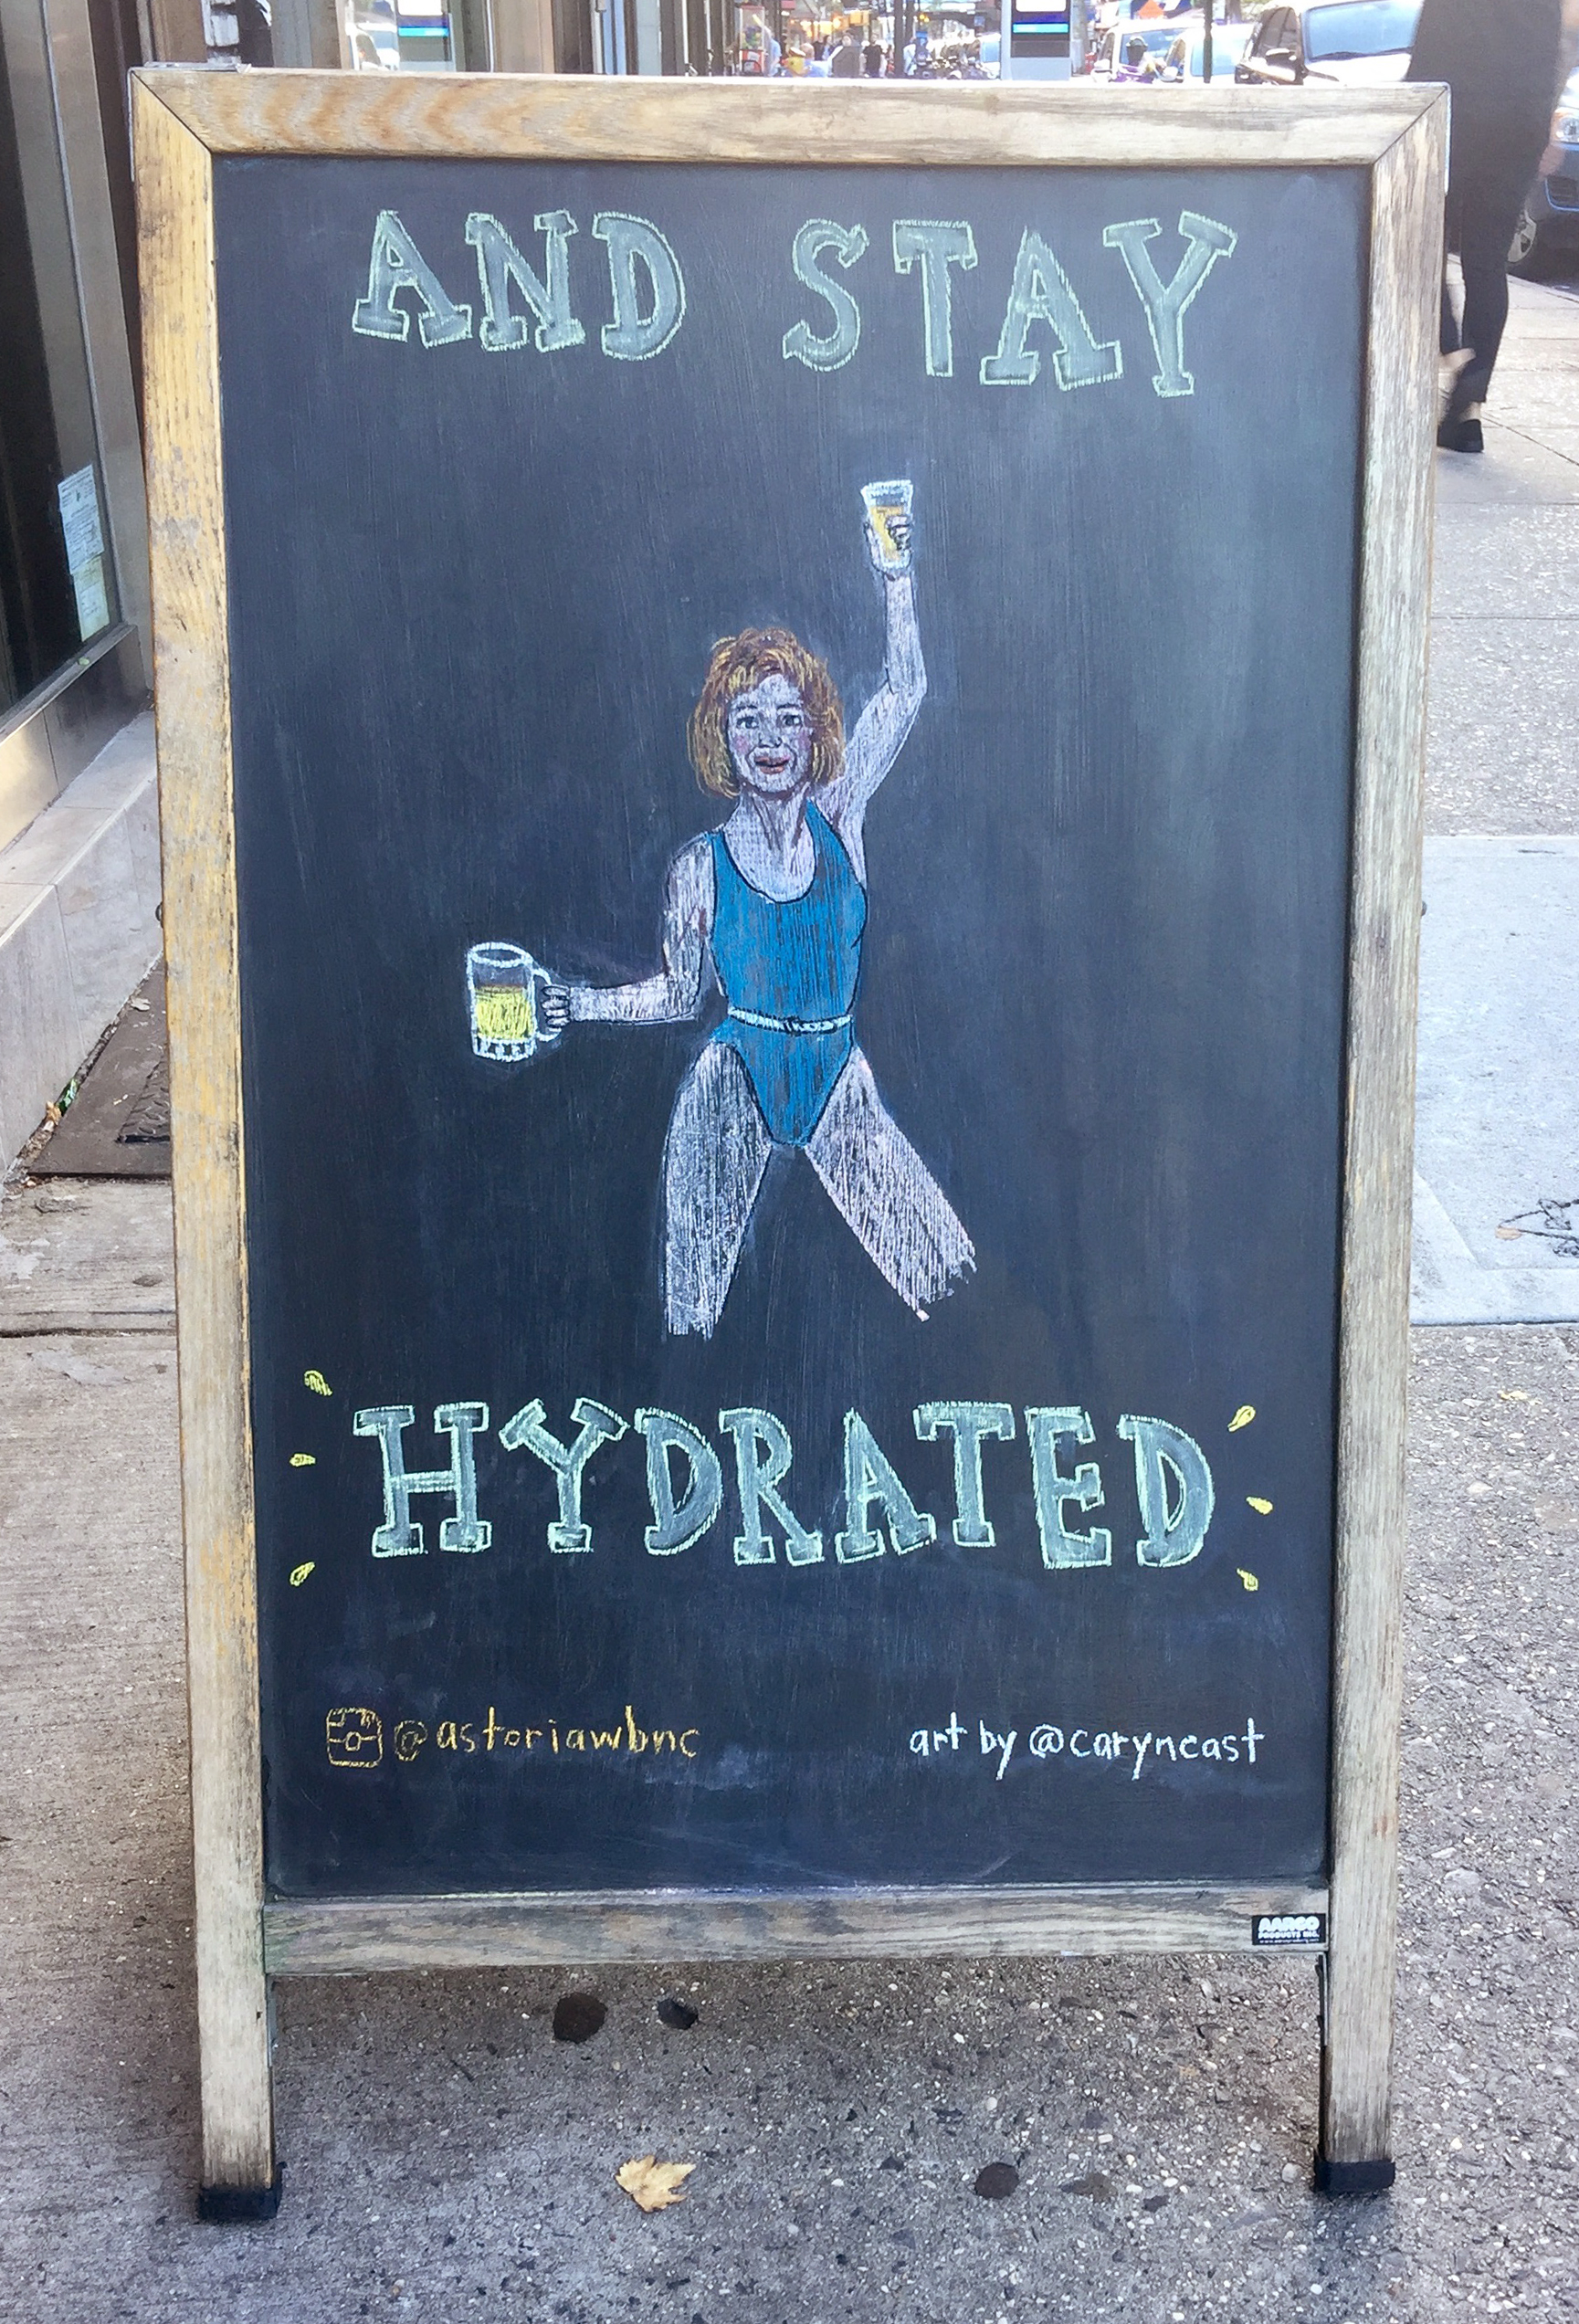 AND STAY
HYDRATED
@astoriawbnc
art by @caryncast
AARCO
PRODUCTS INC.